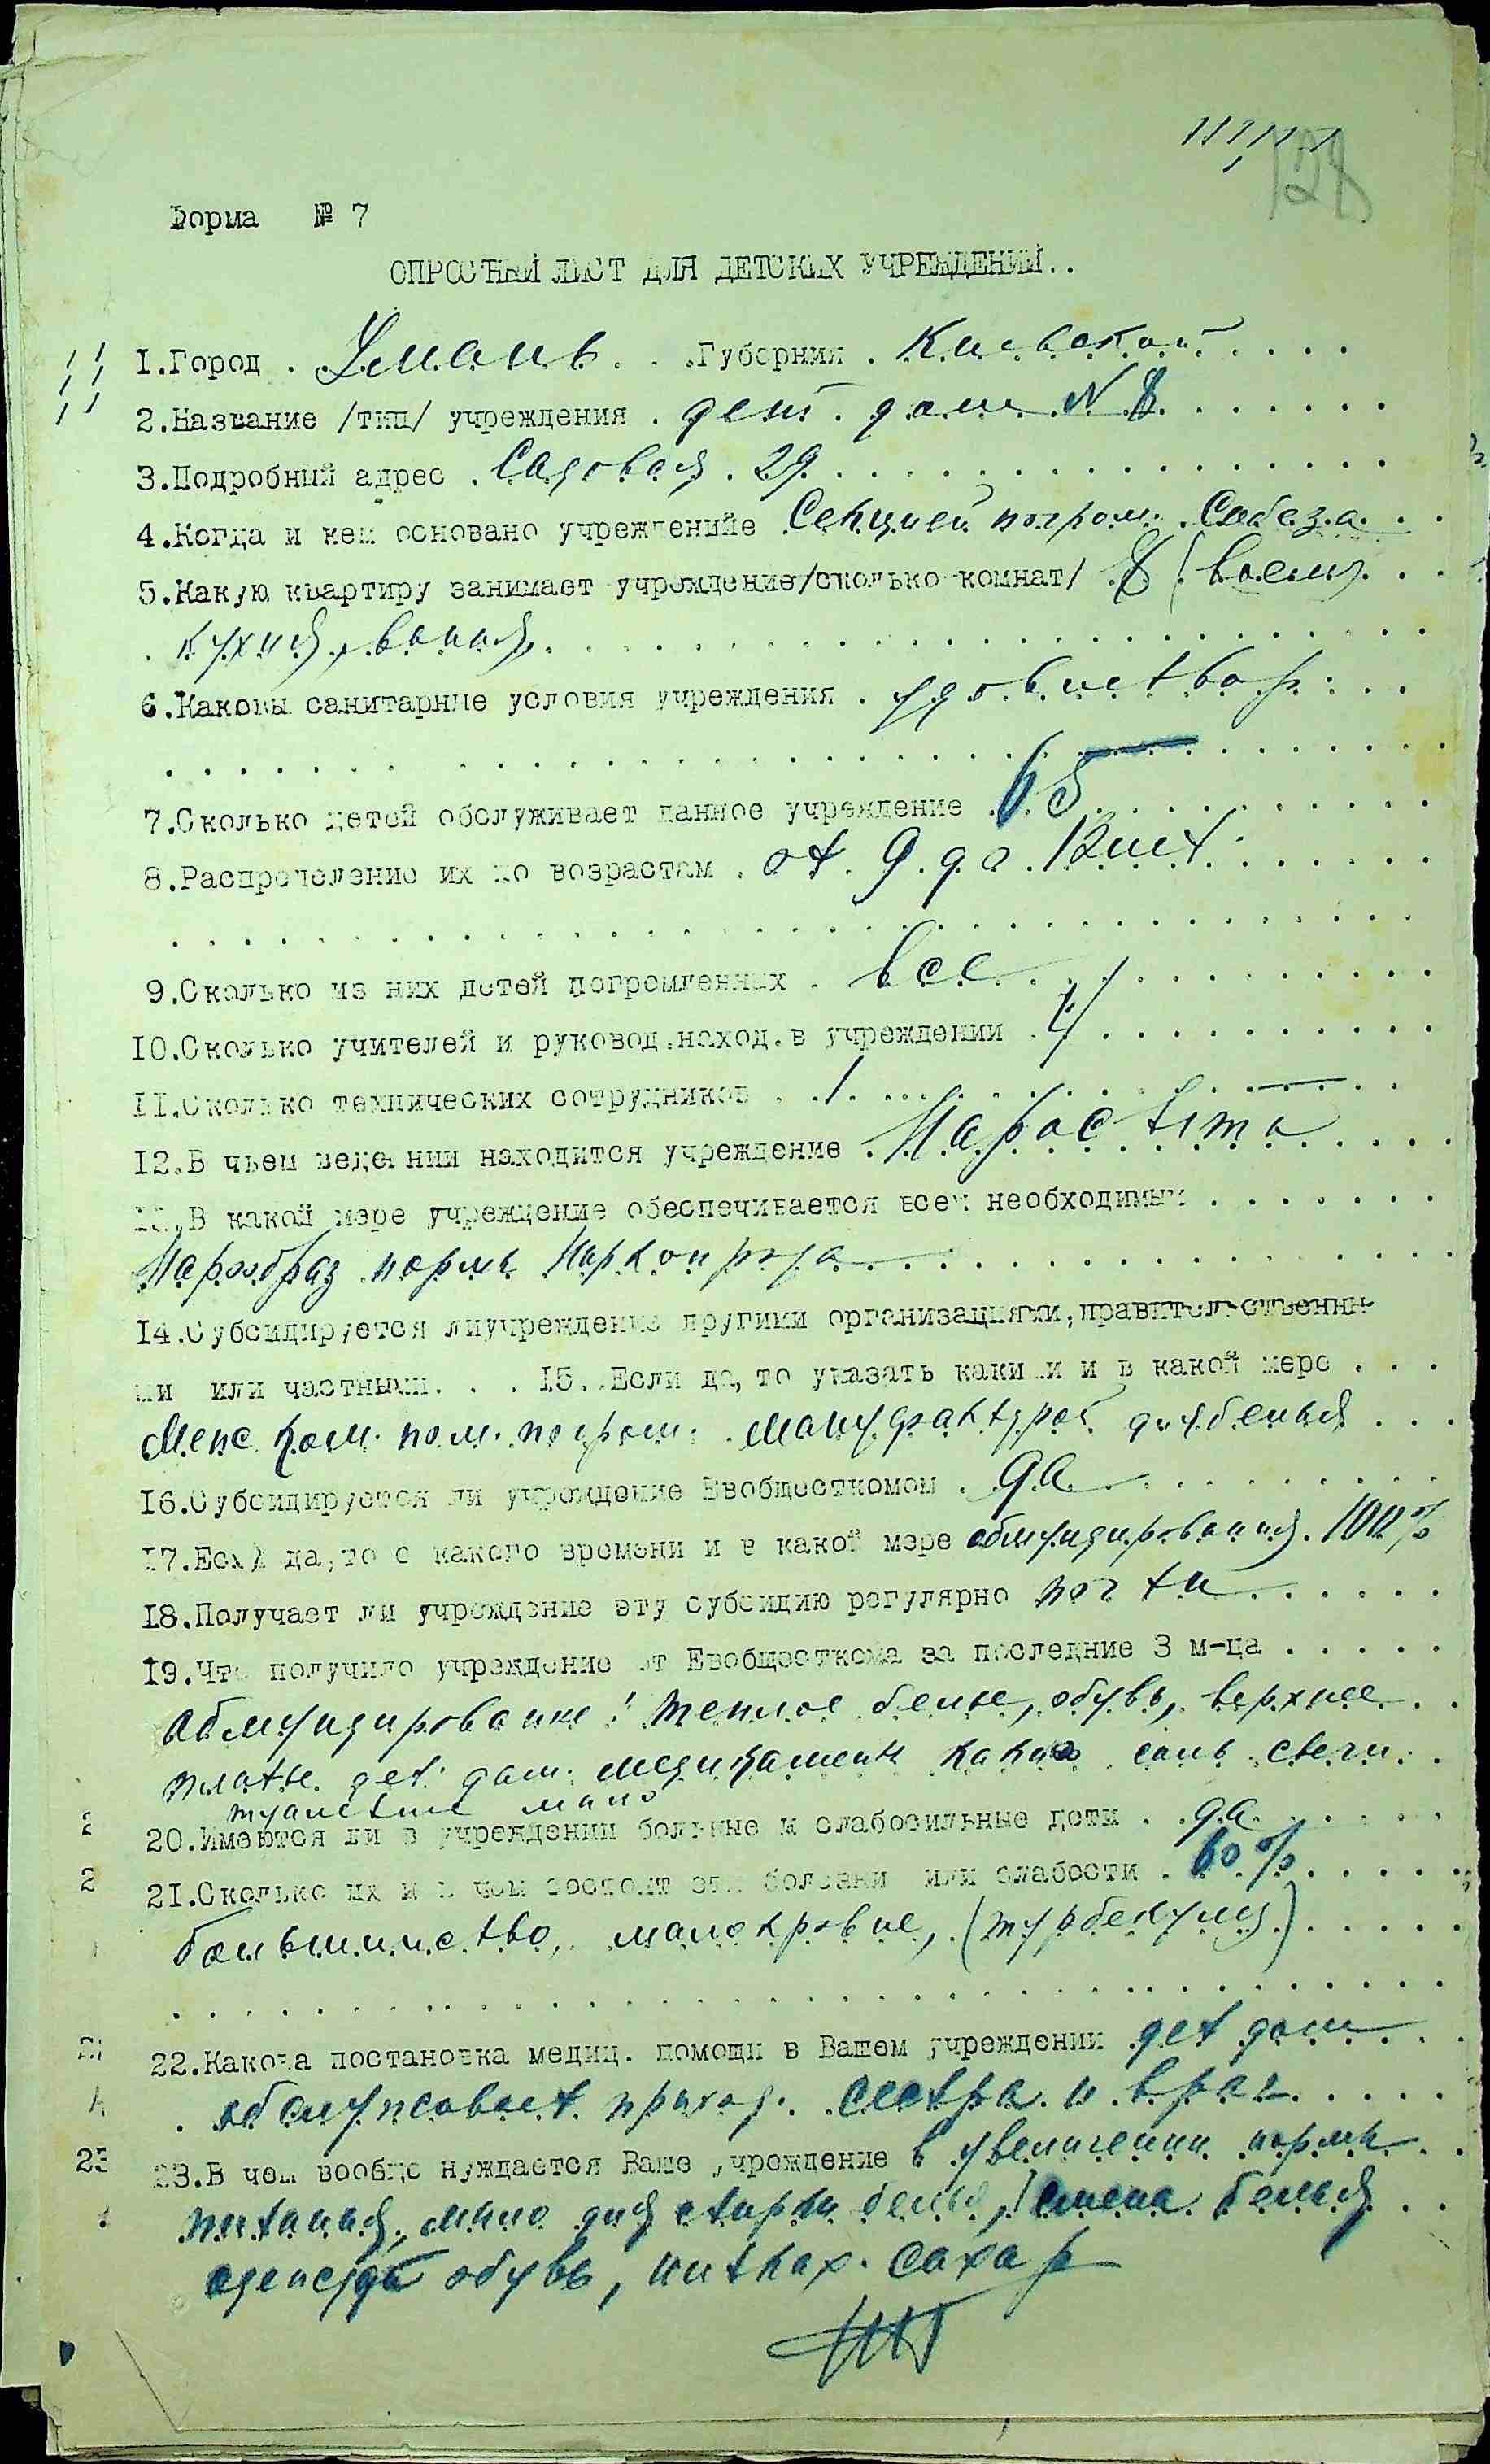 128
Форма № 7
ОПРОСТНЫЙ ЛИСТ ДЛЯ ДЕТСКИХ УЧРЕЖДЕНИЙ..
1.Город . Умань . . .Губерния . Киевской . . . .
2.Название /тип/ учреждения . дет. дом N 8 . . . . . . .
3.Подробный адрес . Садовая . 29 . . . . . . . . . . . . . . . .
4.Когда и кем основано учрежденийе Секцией погром. Собеза . .
5.Какую квартиру занимает учреждение/сколько комнат/ 8 (восем) . . .
. кухня, ванная, . . . . . . . . . . . . . . . . . . . . . . . .
6.Каковы санитарные условия учреждения . удовлетвор. . . .
7.Сколько детей обслуживает данное учреждение . 65 . . . . . . . . . .
8.Распределение их по возрастам . от 9 до 12 лет . . . . . . .
9.Сколько из них детей погромленных . все . . . . . . . . . . .
10.Сколько учителей и руковод.наход.в учреждении . 4 . . . . . . . . . .
11.Сколько технических сотрудников . . 1 . . . . . . . . . . . .
12.В чьем веде нии находится учреждение . Нароб . . . . .
13.В какой мере учреждение обеспечивается всем необходимым . . . . . . .
Наробраз норма Наркопрода . . . . . . . . . . . . . . . .
14.Субсидируется лиучреждение другими организациями,правительственны-
ми или частными. . . 15..Если да, то указать какими и в какой мере . . .
Меж ком. пом. погром. мануфактурой для белья . . .
16.Субсидируется ли учреждение Евобщесткомом . да . . . . . . . . .
17.Если да,то с какого времени и в какой мере обмундирования. 100%
18.Получает ли учреждение эту субсидию регулярно почти . . . . . .
19.Что получило учреждение от Евобщесткома за последние 3 м-ца . . . . .
Обмундирование: теплое белье, обувь, верхнее . .
платье дет. дом. медикаменты какао соль свечи . .
туалетное мыло
20.Имеются ли в учреждении больные и слабосильные дети . . да . . . . . .
21.Сколько их и в чем состоит эти болезни или слабости . 60 % . . . . .
большинство, малокровие, (турбекулез) . . . . .
22.Какова постановка медиц. помощи в Вашем учреждении дет дом . .
. обслуживает приход. сестра и врач . . . . .
23.В чем вообще нуждается Ваше учреждение в увеличении нормы . .
питания, мыло для стирки белья, смена белья . .
одежда обувь, нитках. сахар